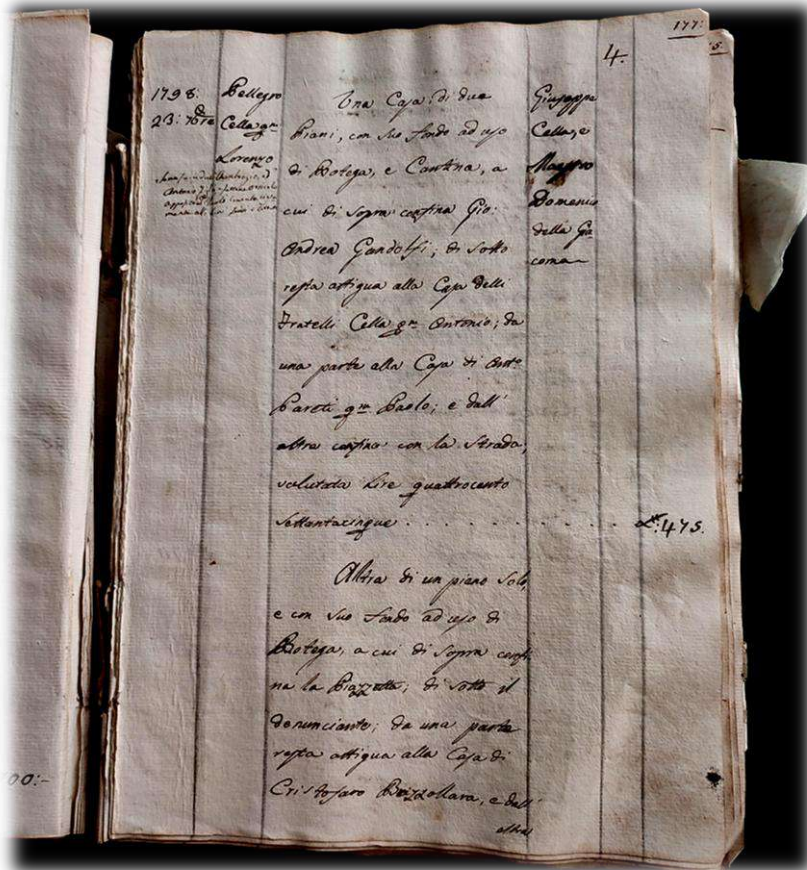 177:
4.
1798:
23: 7bre
Pellegro
Cella qm
Lorenzo
Una Casa di due
Piani, con suo fondo ad uso
di Botega, e Cantina, a
cui di sopra confina Gio:
Andrea Gandolfi; di sotto
resta attigua alla Casa delli
Fratelli Cella qm Antonio; da
una parte alla Casa di Anto
Pareti qm Paolo; e dall'
altra confina con la Strada,
valutata Lire quattrocento
settantacinque . . . . . . . . . . . . 475.
Giuseppe
Cella, e
Maestro
Domenico
della Gia
coma
Altra di un piano solo,
e con suo fondo ad uso di
Botega, a cui di sopra confi
na la Piazzetta; di sotto il
denunciante; da una parte
resta attigua alla Casa di
Cristofaro, e dall'
altra
00:-